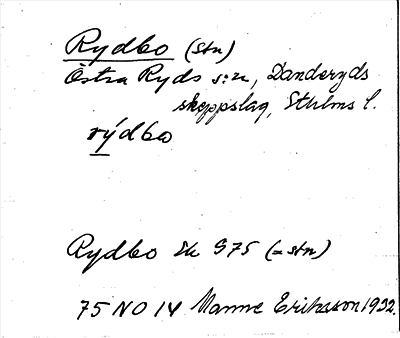 Rydbo (stn)
Östra Ryds s:n, Danderyds
skeppslag, Sthlms l.
rýdbo
Rydbo Ek 975 (= stn)
75 NO 14 Manne Eriksson 1932.